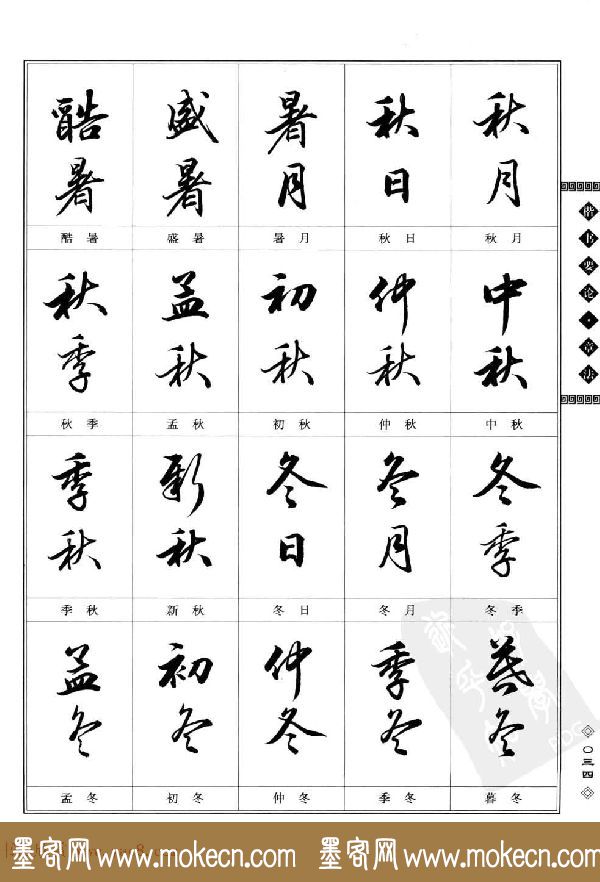 酷暑
盛暑
暑月
秋日
秋月
酷暑
盛暑
暑月
秋日
秋月
秋季
孟秋
初秋
仲秋
中秋
秋季
孟秋
初秋
仲秋
中秋
季秋
新秋
冬日
冬月
冬季
季秋
新秋
冬日
冬月
冬季
孟冬
初冬
仲冬
季冬
暮冬
孟冬
初冬
仲冬
季冬
暮冬
楷书要论·章法
〇三四
PDG
墨客网 www.mokecn.com 墨客网 www.mokecn.com